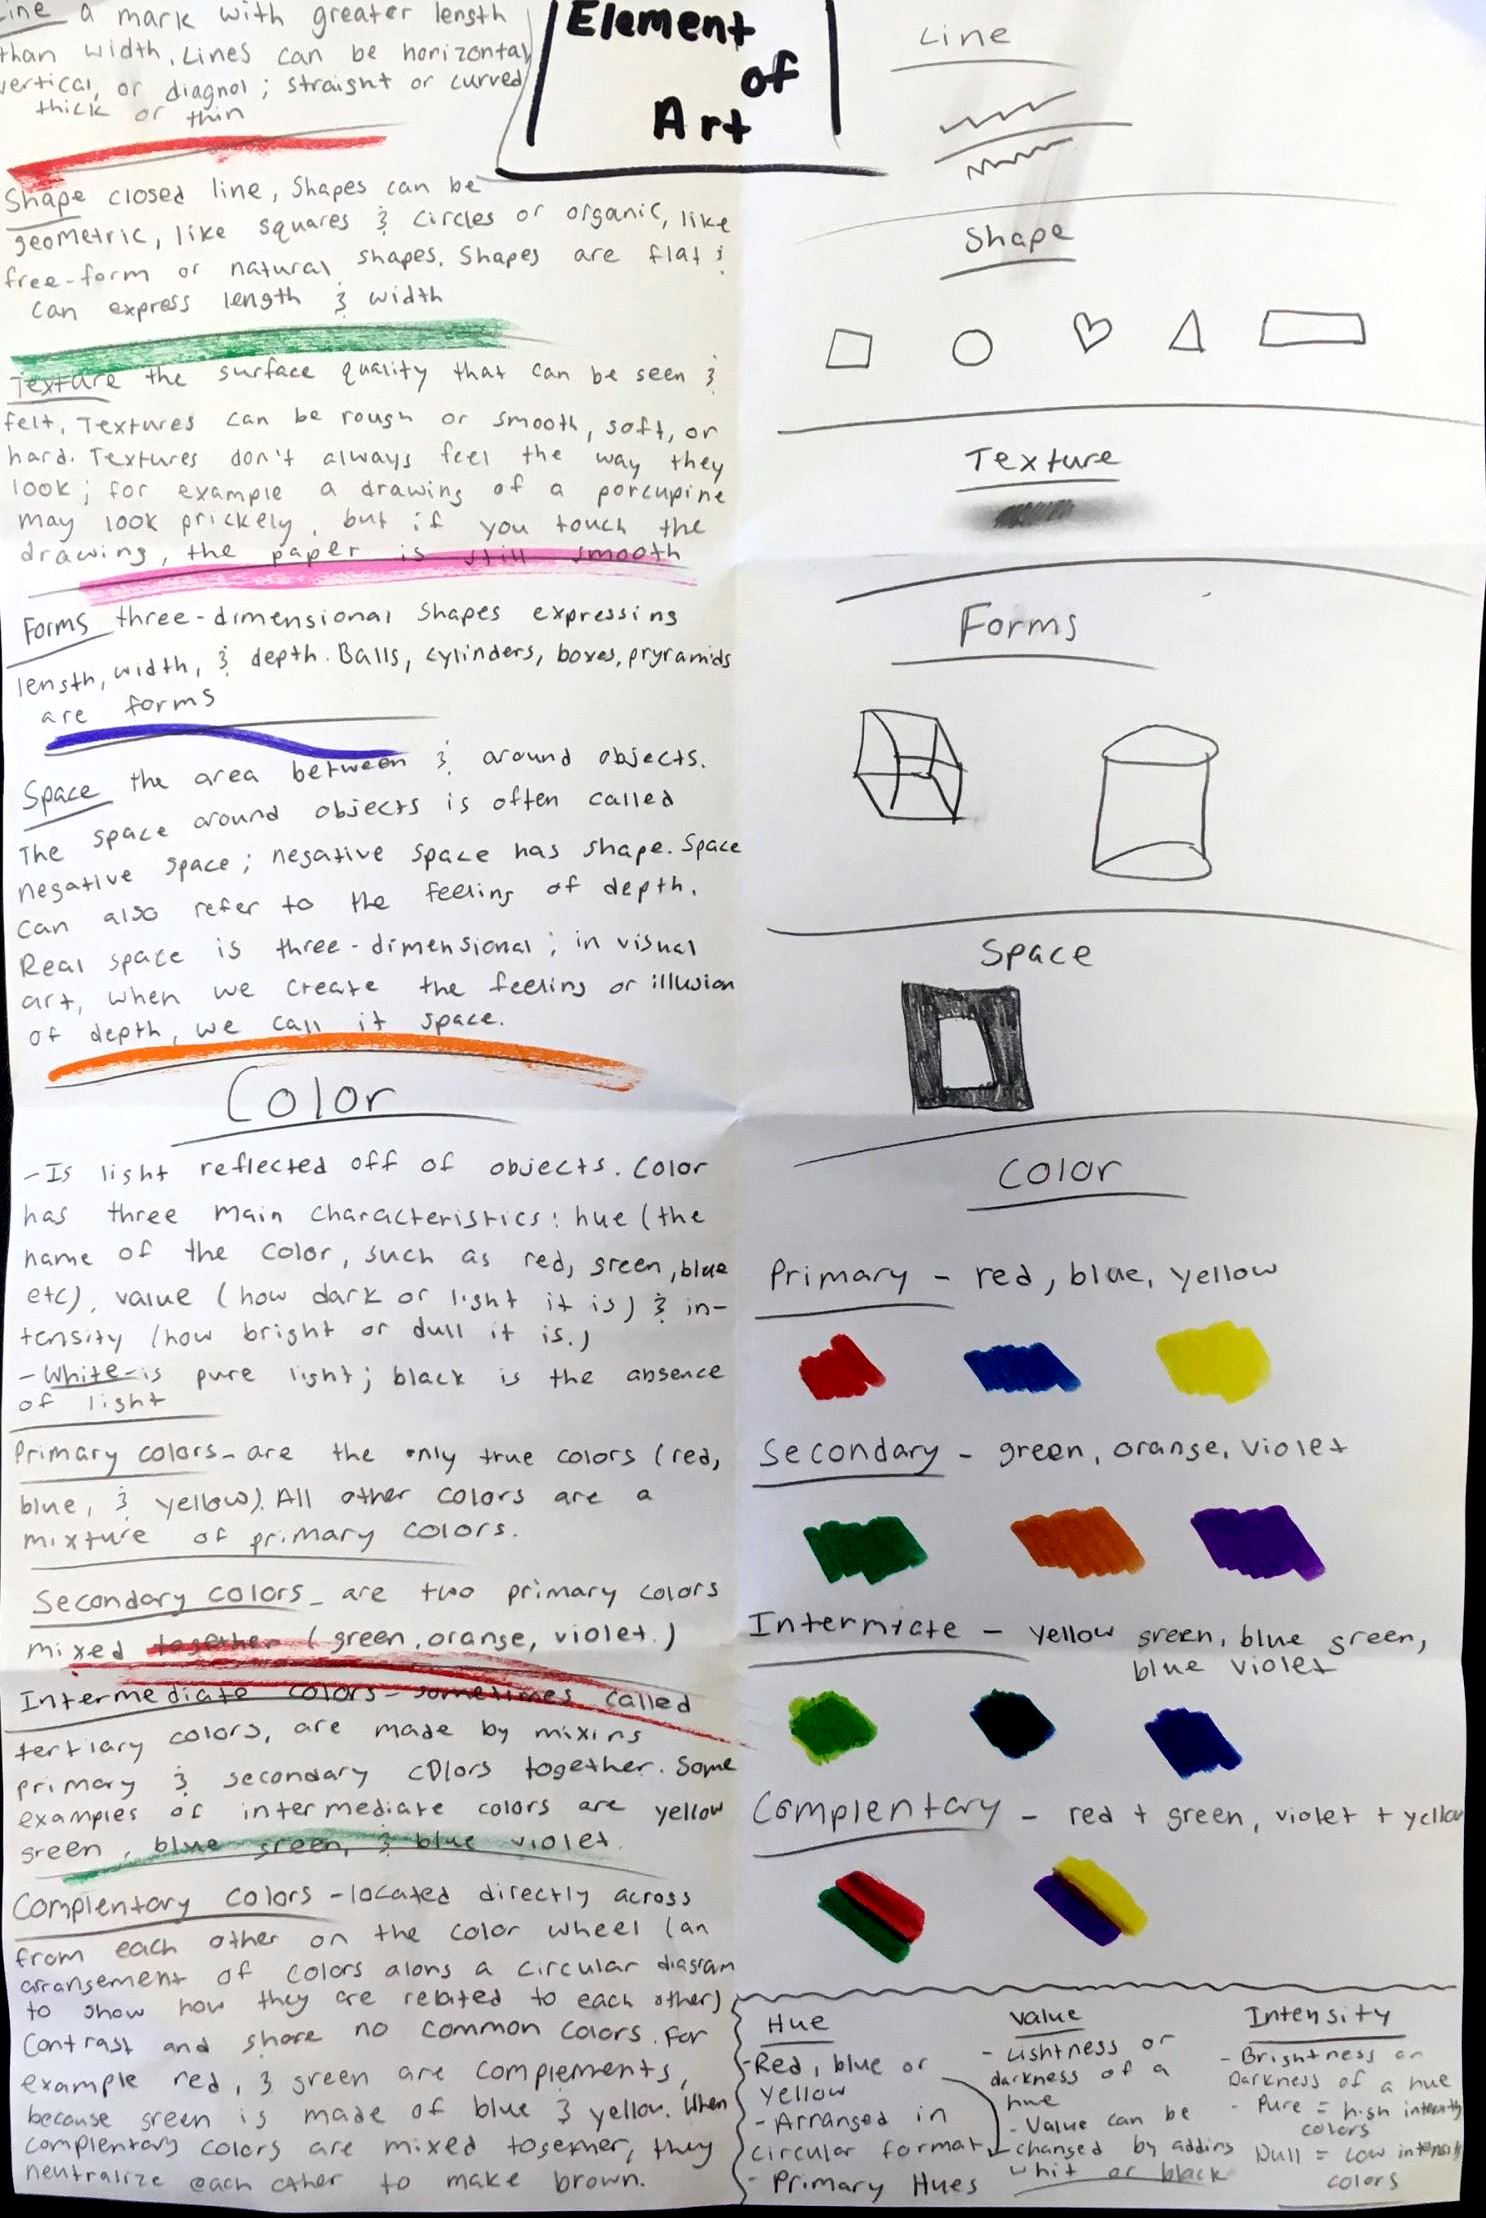 Line a mark with greater length
than width. Lines can be horizontal,
vertical, or diagnol; straight or curved,
thick or thin
Shape closed line, Shapes can be
geometric, like squares & circles or organic, like
free-form or natural shapes. Shapes are flat &
can express length & width
Texture the surface quality that can be seen &
felt. Textures can be rough or smooth, soft, or
hard. Textures don't always feel the way they
look; for example a drawing of a porcupine
may look prickely, but if you touch the
drawing, the paper is still smooth
Forms three-dimensional shapes expressing
length, width, & depth. Balls, cylinders, boxes, pryramids
are forms
Space the area between & around objects.
The space around objects is often called
negative space; negative space has shape. Space
can also refer to the feeling of depth.
Real space is three-dimensional; in visual
art, when we create the feeling or illusion
of depth, we call it space.
Color
- Is light reflected off of objects. Color
has three main characteristics: hue (the
name of the color, such as red, green, blue
etc), value (how dark or light it is) & in-
tensity (how bright or dull it is.)
- White-is pure light; black is the absence
of light
Primary colors- are the only true colors (red,
blue, & yellow). All other colors are a
mixture of primary colors.
Secondary colors- are two primary colors
mixed together (green, orange, violet.)
Intermediate colors- sometimes called
tertiary colors, are made by mixing
primary & secondary colors together. Some
examples of intermediate colors are yellow
green, blue green, & blue violet.
Complentary colors -located directly across
from each other on the color wheel (an
arrangement of colors along a circular diagram
to show how they are related to each other)
Contrast and share no common colors. For
example red, & green are complements,
because green is made of blue & yellow. When
complentary colors are mixed together, they
neutralize each other to make brown.
Element
of
Art
Line
Shape
Texture
Forms
Space
Color
Primary - red, blue, yellow
Secondary - green, orange, violet
Intermycate - yellow green, blue green,
blue violet
Complentary - red + green, violet + yellow
Hue
-Red, blue or
yellow
- Arranged in
circular format
- Primary Hues
Value
- Lightness or
darkness of a
hue
- Value can be
changed by adding
whit or black
Intensity
- Brightness or
Darkness of a hue
- Pure = high intensity
colors
Dull = low intensity
colors